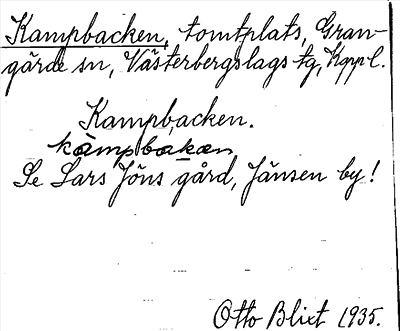 Kampbacken, tomtplats, Gran-
gärde sn, Västerbergslags tg, Kppl.
Kampbacken.
kàmpbakan
Se Lars Jöns gård, Jänsen by!
Otto Blixt 1935.